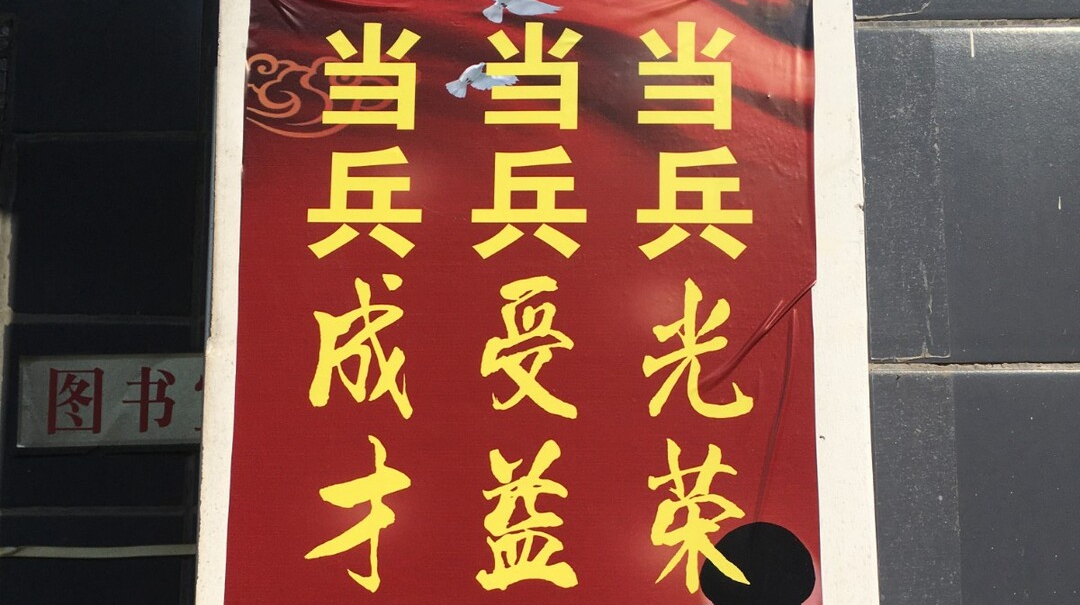 当兵光荣
当兵受益
当兵成才
图书